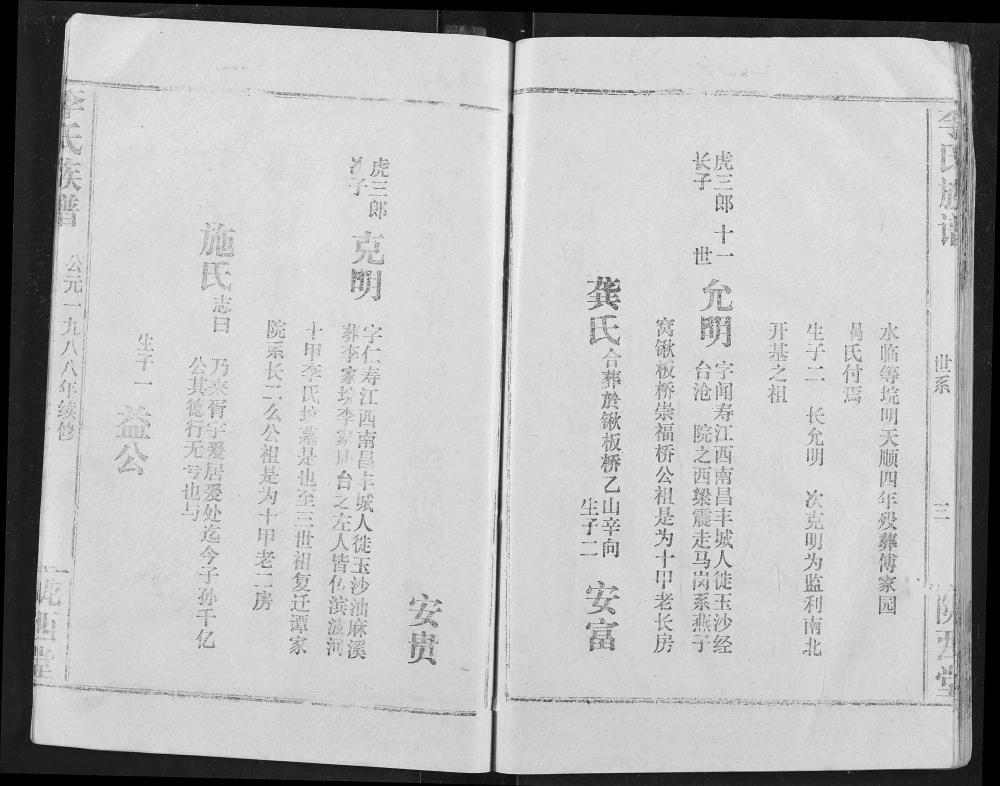 李氏族谱
世系
三
陇西堂
水临等垸明天顺四年殁葬傅家园
氏付焉
生子二 长允明 次克明为监利南北
开基之祖
虎三郎
长子
十一世
允明
字闻寿江西南昌丰城人徙玉沙经
台沧 院之西梁震走马岗系燕子
窝锹板桥崇福桥公祖是为十甲老长房
龚氏
合葬於锹板桥乙山辛向
生子二
安富
安贵
虎三郎
次子
克明
字仁寿江西南昌丰城人徙玉沙油麻溪
葬李家垸李家 台之左人皆传滨波河
十甲李氏 墓是也至三世祖复迁谭家
院系长二么公祖是为十甲老二房
施氏
志曰
乃来胥宇爰居爰处迄今子孙千亿
公其德行无亏也与
生子一
益公
李氏族谱
公元一九八八年续修
陇西堂